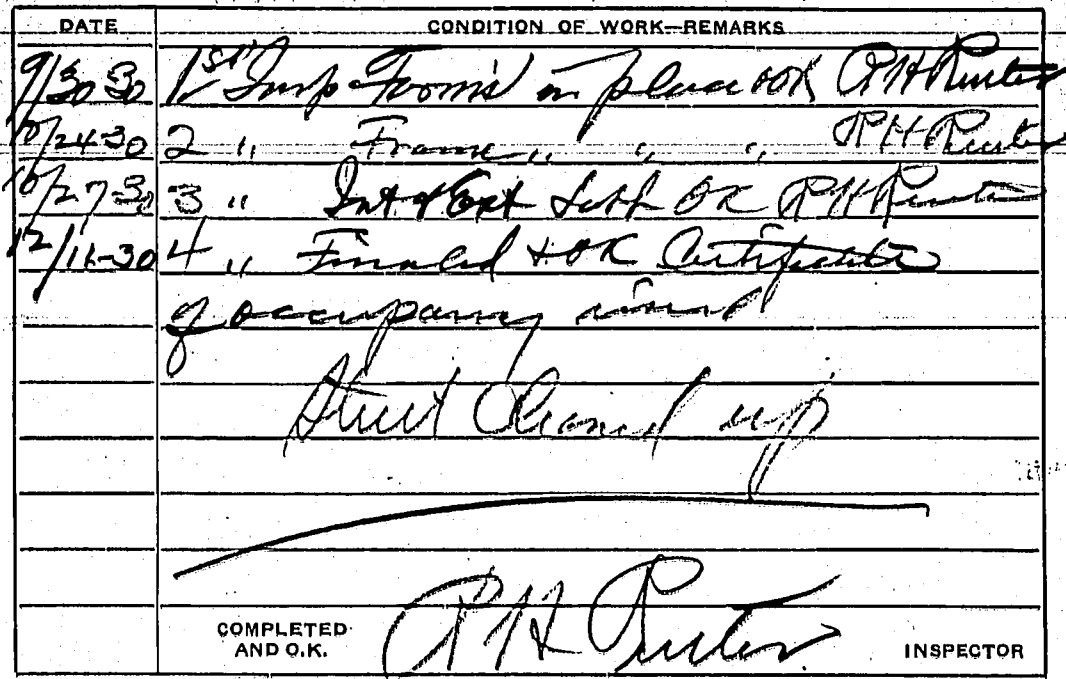 DATE CONDITION OF WORK—REMARKS
9/30 30 1st Insp Forms in place OK R H
10/24-30 2 " Frame " " " R H
10/27-30 3 " Int & Ext Lath OK R H
12/11-30 4 " Finaled & OK Certificate
of occupancy issued
Street Cleaned up
COMPLETED AND O.K. R H INSPECTOR